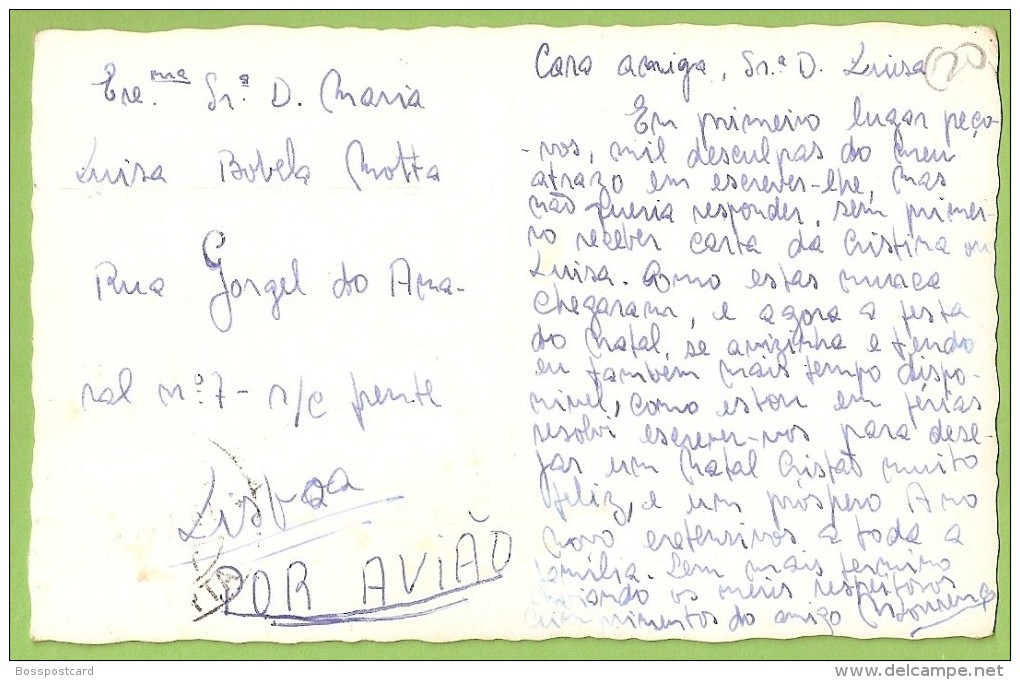 Exe.ma Sr.ª D. Maria
Luisa Bobela Motta
Rua Gorgel do Ama-
ral nº. 7 - r/c frente
Lisboa
POR AVIÃO
Cara amiga, Sr.ª D. Luisa
20
Em primeiro lugar peço-
-vos, mil desculpas do meu
atrazo em escrever-lhe, mas
não queria responder, sem primei-
ro receber carta da Cristina ou
Luisa. Como estas nunca
chegaram, e agora a festa
do Natal, se avizinha e tendo
eu também mais tempo dispo-
nivel, como estou em férias
resolvi escrever-vos para dese-
jar um Natal Cristão muito
feliz, e um próspero Ano
Novo extensivos a toda a
família. Sem mais termino
enviando os meus respeitosos
cumprimentos do amigo
Bosspostcard
www.delcampe.net